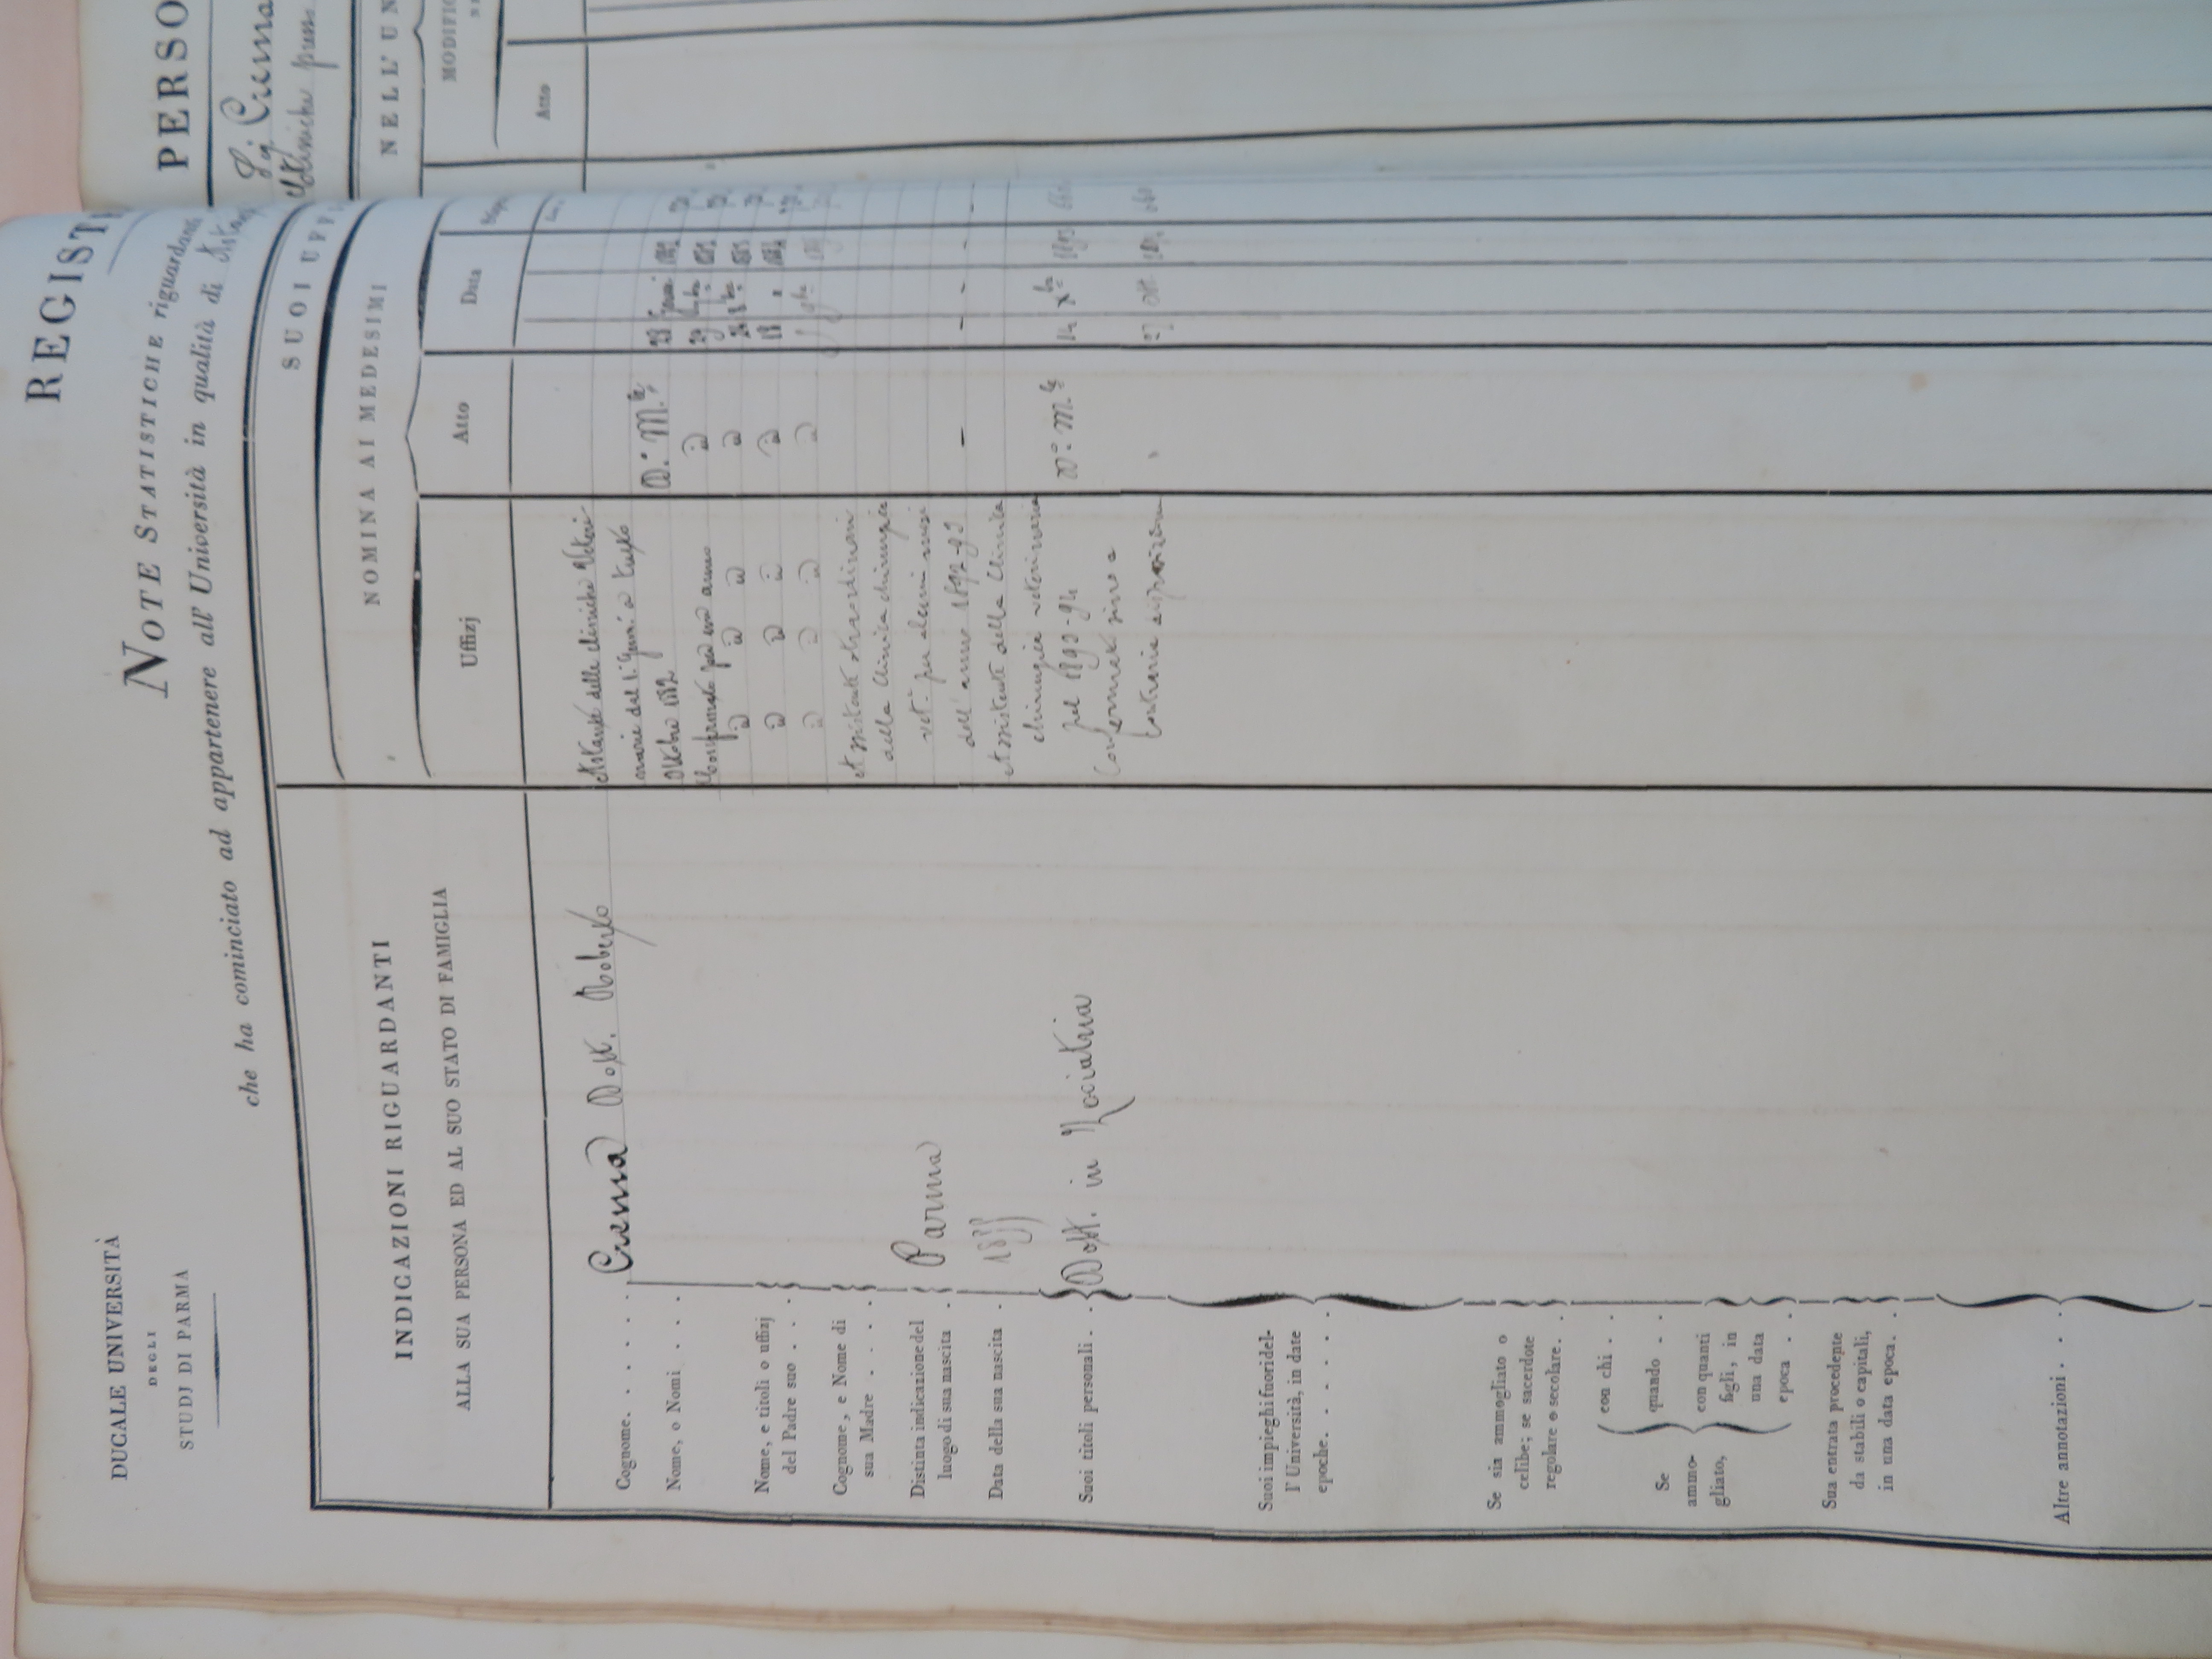 REGIST
PERSO
DUCALE UNIVERSITÀ
DEGLI
STUDJ DI PARMA
NOTE STATISTICHE riguardanti
Sig. Crema
che ha cominciato ad appartenere all' Università in qualità di
Cliniche
INDICAZIONI RIGUARDANTI
ALLA SUA PERSONA ED AL SUO STATO DI FAMIGLIA
SUOI UFF
NELL' UN
NOMINA AI MEDESIMI
MODIFIC
Uffizj
Atto
Data
Atto
Cognome. . . . . .
Crema Dott. Roberto
Nome, o Nomi . . .
Nome, e titoli o uffizj
del Padre suo . . .
Cognome, e Nome di
sua Madre . . . .
Distinta indicazione del
luogo di sua nascita .
Parma
Data della sua nascita .
Suoi titoli personali. .
Dott. in Zooiatria
Suoi impieghi fuori del-
l' Università, in date
epoche. . . . . . .
Se sia ammogliato o
celibe; se sacerdote
regolare o secolare. .
Se
ammo-
gliato,
con chi . .
quando . .
con quanti
figli, in
una data
epoca . .
Sua entrata procedente
da stabili o capitali,
in una data epoca. .
Altre annotazioni. . .
Assistente delle cliniche Veteri-
narie dal 1° Genn. a tutto
Ottobre 1882
D. M.
Confermato per un anno
Assistente straordinario
della Clinica chirurgica
vet. per alcuni mesi
dell' anno 1892-93
Assistente della Clinica
chirurgica veterinaria
pel 1893-94
D. M. 14 Xbre 1893
Confermato sino a
contraria disposizione
27 Ott.